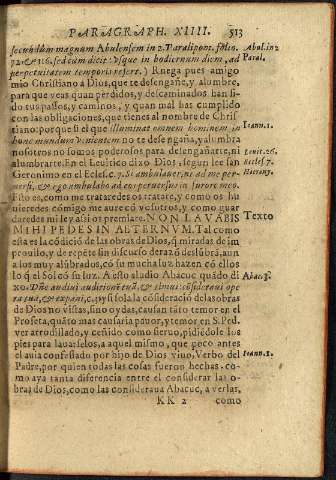 PARAGRAPH. XIIII. 513
secundum magnum Abulensem in 2. Paralipom. folio. Abul. in 2
72. & 126. sed cum dicit Vsque in hodiernum diem, ad Paral.
perpetuitatem temporis refert.) Ruega pues amigo
mio Christiano a Dios, que te desengañe, y alumbre,
para que veas quan perdidos, y descaminados han si-
do sus passos, y caminos, y quan mal has cumplido
con las obligaciones, que tienes al nombre de Chris
tiano: porque si el que illuminat omnem hominem in Ioann. 1.
hunc mundum venientem no te desengaña, y alumbra
nosotros no somos poderosos para desengañarte, ni Leuit. 26.
alumbrarte. En el Leuitico dixo Dios, segun lee san Eccles. 7.
Geronimo en el Eccles. c. 7. Si ambulaueritis ad me per- Hierony.
uersi, & ego ambulabo ad vos peruersus in furore meo.
Esto es, como me trataredes os tratare, y como os hu
uieredes cõmigo me aurè cõ vosotros, y como guar
daredes mi ley assi os premiare. NON LAVABIS Texto
MIHI PEDES IN AETERNVM. Tal como
esta es la cõdiciõ de las obras de Dios, q̃ miradas de im
prouiso, y de repẽte sin discurso de razõ deslũbrã, aun
a los muy alũbrados, cõ su mucha luz hazen cõ ellos
lo q̃ el Sol cõ su luz. A esto aludio Abacuc quãdo di Abac. 3.
xo. Dñe audiui auditionẽ tuã, & timui: cõsideraui ope
ra tua, & expaui, c.) y si sola la cõsideraciõ de las obras
de Dios no vistas, sino oydas, causan tãto temor en el
Profeta, quãto mas causaria pauor, y temor en S. Ped
ver arrodillado, y ceñido como sieruo, pidiẽdole los
pies para lauarselos, a aquel mismo, que poco antes
el auia confessado por hijo de Dios viuo, Verbo del Ioann. 1.
Padre, por quien todas las cosas fueron hechas: co-
mo aya tanta diferencia entre el considerar las o-
bras de Dios, como las consideraua Abacuc, a verlas,
KK 2 como